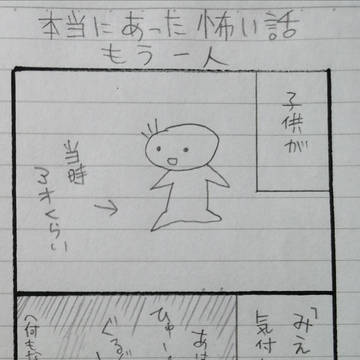 本当にあった怖い話
もう一人
子供が
当時
3才くらい
「みえ
気付
あは
ひゅー
ぐるぐ
(何もな